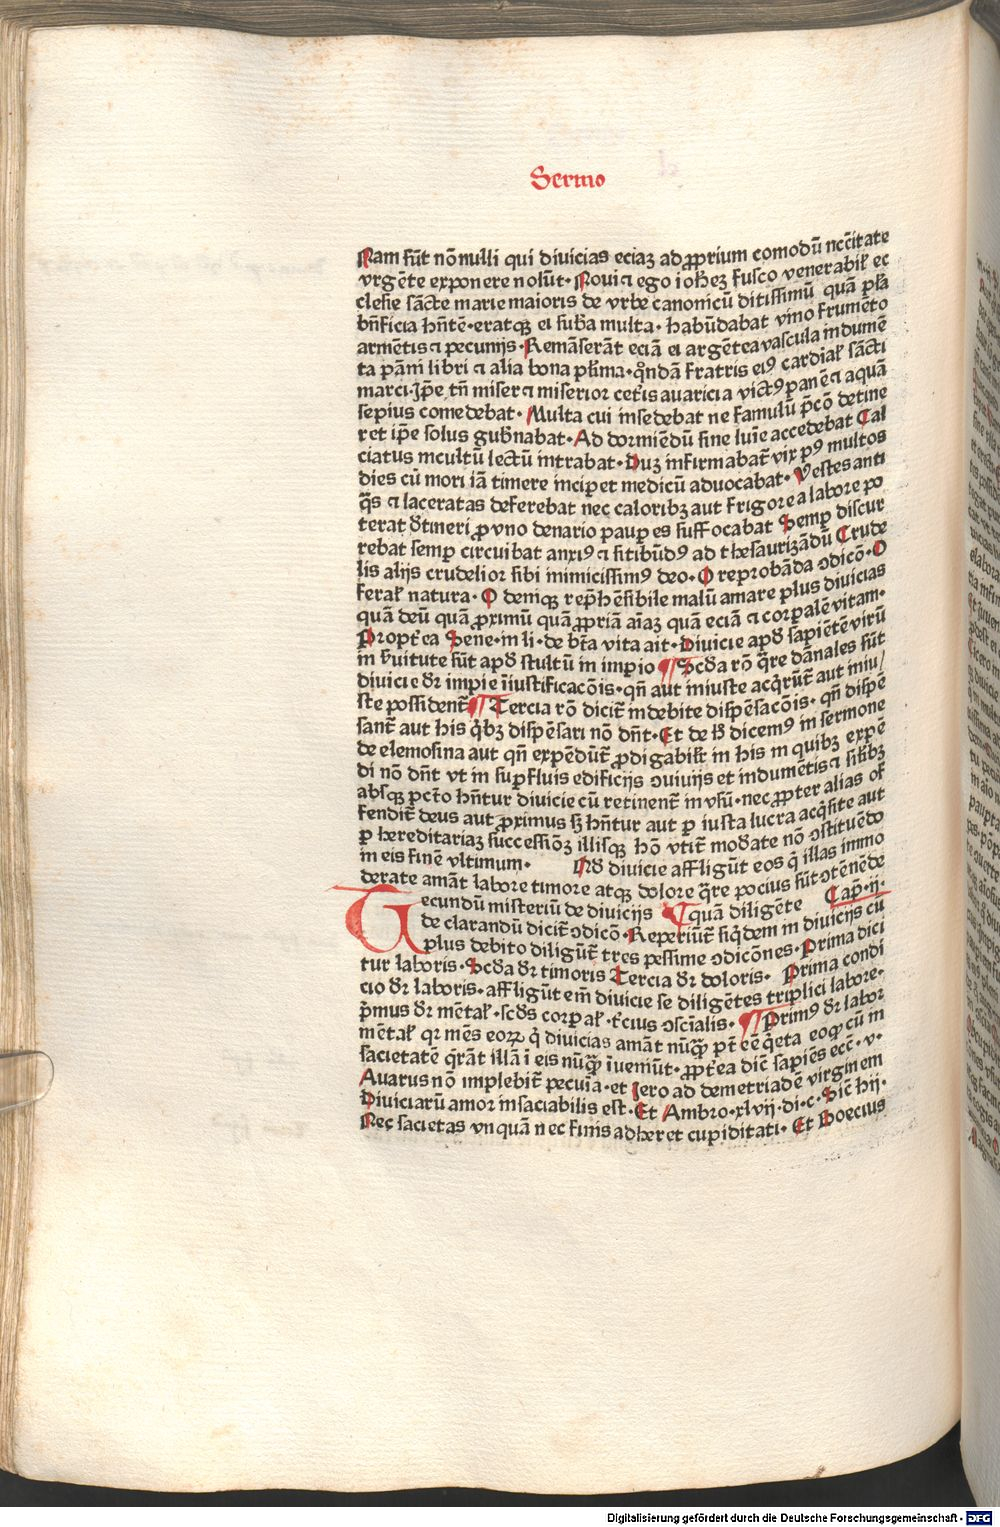 Sermo
Nam sūt nōnulli qui divicias eciaꝫ ad ꝓprium comodū ncc̄itate
vrgēte exponere nolūt. Noui ⁊ ego ioheꝫ fusco venerabilē ec
clesie sācte marie maioris de vrbe canonicū ditissimū quā pl̄a
bn̄ficia hn̄tē. eratqꝫ ei sub̄a multa. habūdabat vino frumēto
armētis ⁊ pecunijs. Remāserāt eciā ei argētea vascula indumē
ta pāni libri ⁊ alia bona pl̄ima. qn̄dā fratris eiꝰ cardial̄ sācti
marci. Jp̄e tn̄ miser ⁊ miserior cet̄is auaricia victꝰ panē ⁊ aquā
sepius comedebat. Multa cui insedebat ne famulū p̄cō detine
ret ip̄e solus gub̄nabat. Ad dormiēdū sine luīe accedebat Cal
ciatus incultū lectū intrabat. Duꝫ infirmabat̄ vix pꝰ multos
dies cū mori iā timere incip̄et medicū aduocabat. Vestes anti
q̄s ⁊ laceratas deferebat nec caloribꝫ aut frigore a labore po
terat d̄tineri ꝓ vno denario paup̄es suffocabat Semꝑ discur
rebat semꝑ circuibat anxiꝰ ⁊ sitibūdꝰ ad thesaurizādū Crude
lis alijs crudelior sibi inimicissimꝰ deo. O reprobāda ↄdicō. O
feral̄ natura. O deniqꝫ rep̄hēsibile malū amare plus divicias
quā deū quā ꝓximū quā ꝓpriā aīaꝫ quā eciā ⁊ corꝑalē vitam.
Propt̄ea Sene. in li. de bt̄a vita ait. Diuicie apd̄ sapiētē virū
in s̄uitute sūt apd̄ stultū in impio ¶ Scd̄a rō q̄re dānales sūt
diuicie dr̄ impie īiustificacōis. qn̄ aut iniuste acq̄rūt̄ aut iniu/
ste possident̄ ¶ Tercia rō dicit̄ indebite dispēsacōis. qn̄ dispē
sant̄ aut his q̄bꝫ dispēsari nō dn̄t. Et de h̄ dicemꝰ in sermone
de elemosina aut qn̄ expēdūt̄ ꝓdigabilit̄ in his in quibꝫ expē
di nō dn̄t vt in suꝑfluis edificijs ↄuiuijs et indumētis ⁊ sil̄ibꝫ
absqꝫ pct̄o hn̄tur diuicie cū retinent̄ in vsū. nec ꝓpter alias of
fendit̄ deus aut ꝓximus sꝫ hn̄tur aut ꝑ iusta lucra acq̄site aut
ꝑ hereditariaꝫ successiōꝫ illisqꝫ hō vtit̄ mod̄ate nō ↄstituēdo
in eis finē vltimum. Qd̄ diuicie affligūt eos q̄ illas immo
derate amāt labore timore atqꝫ dolore q̄re pocius sūt ↄtēnēde
Secundū misteriū de diuicijs ¶ quā diligēte Cap̄. ij.
de clarandū dicit̄ ↄdicō. Reperiūt̄ siq̄dem in diuicijs cū
plus debito diligūt̄ tres pessime ↄdicōnes. Prima dici
tur laboris. Scd̄a dr̄ timoris Tercia dr̄ doloris. Prima condi
cio dr̄ laboris. affligūt em̄ diuicie se diligētes triplici labore.
p̄mus dr̄ mētal̄. scd̄s corꝑal̄. t̄cius ↄsciālis. ¶ Primꝰ dr̄ labor
mētal̄ qr mēs eoꝝ q̄ diuicias amāt nūqꝫ pt̄ eē q̄eta eoqꝫ cū in
sacietatē q̄rāt illā ī eis nūqꝫ īueniūt. ꝓpt̄ea dic̄ sapiēs ecc̄. v.
Auarus nō implebit̄ pecuīa. et Jero ad demetriadē virginem
Diuiciarū amor insaciabilis est. Et Ambro. xlvij. di. c. Sic̄ hij.
Nec sacietas vnquā nec finis adheret cupiditati. Et Boecius
Digitalisierung gefördert durch die Deutsche Forschungsgemeinschaft - DFG